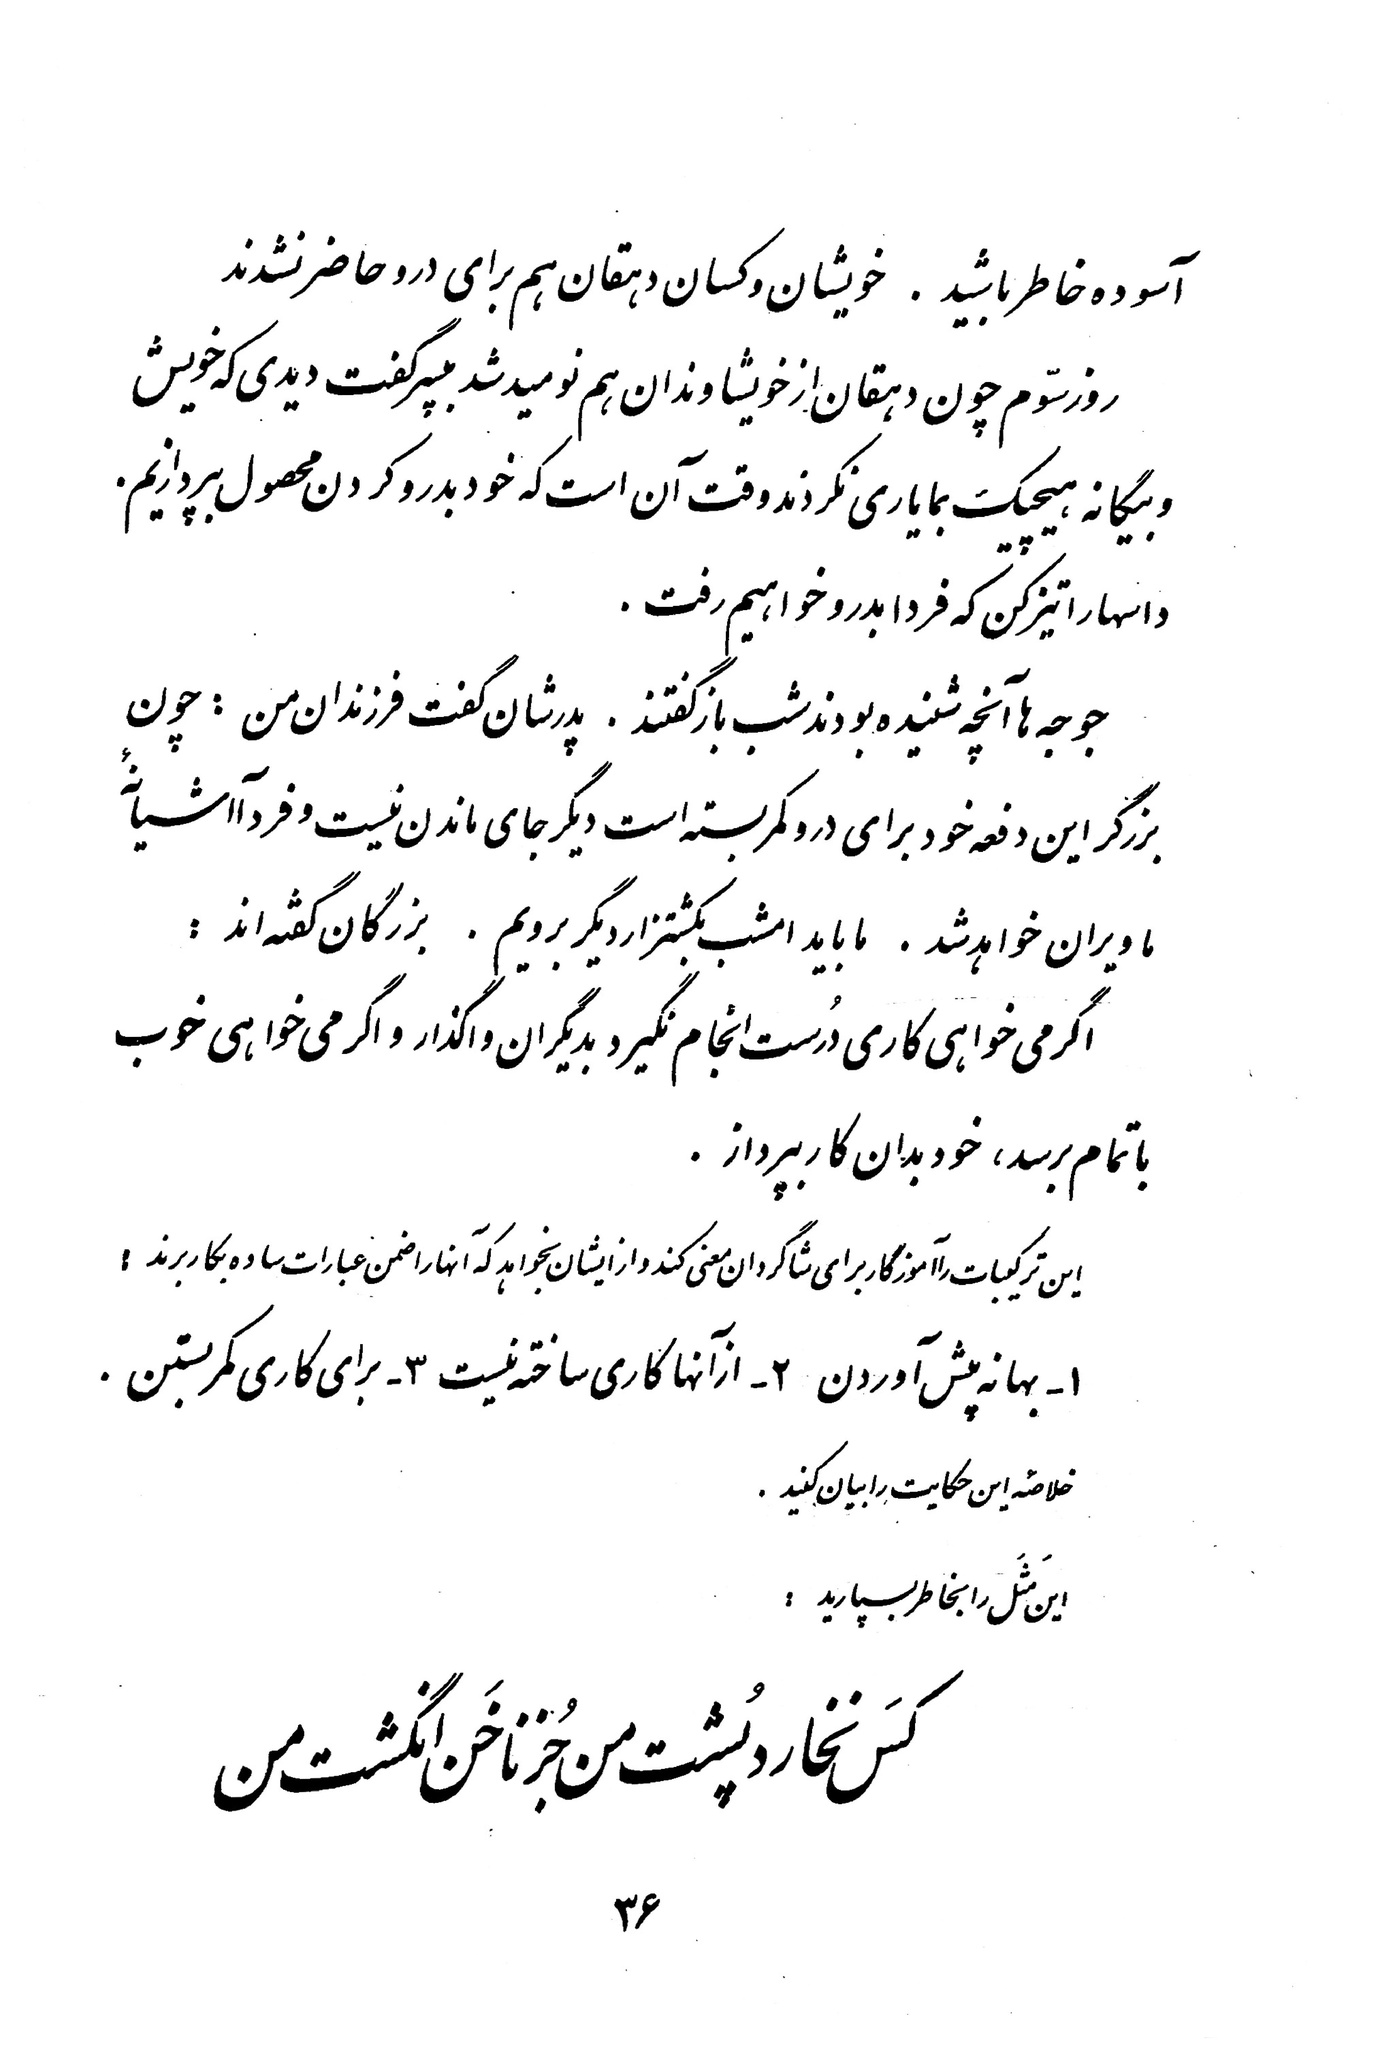 آسوده خاطر باشید . خویشان و کسان دهقان هم برای درو حاضر نشدند
روز سّوم چون دهقان از خویشاوندان هم نومید شد بپسر گفت دیدی که خویش
و بیگانه هیچیک بما یاری نکردند وقت آن است که خود بدرو کردن محصول بپردازیم .
داسها را تیز کن که فردا بدرو خواهیم رفت .
جوجه ها آنچه شنیده بودند شب باز گفتند . پدرشان گفت فرزندان من : چون
بزرگر این دفعه خود برای درو کمر بسته است دیگر جای ماندن نیست و فردا آشیانهٔ
ما ویران خواهد شد . ما باید امشب بکشتزار دیگر برویم . بزرگان گفته اند :
اگر می خواهی کاری دُرست انجام نگیرد بدیگران واگذار و اگر می خواهی خوب
باتمام برسد ، خود بدان کار بپرداز .
این ترکیبات را آموزگار برای شاگردان معنی کند و از ایشان بخواهد که آنها را ضمن عبارات ساده بکار برند :
۱ـ بهانه پیش آوردن ۲ـ از آنها کاری ساخته نیست ۳ـ برای کاری کمر بستن .
خلاصه این حکایت را بیان کنید .
این مَثَل را بخاطر بسپارید :
کَس نخارد پُشت من جُز ناخَن انگشت من
۳۶